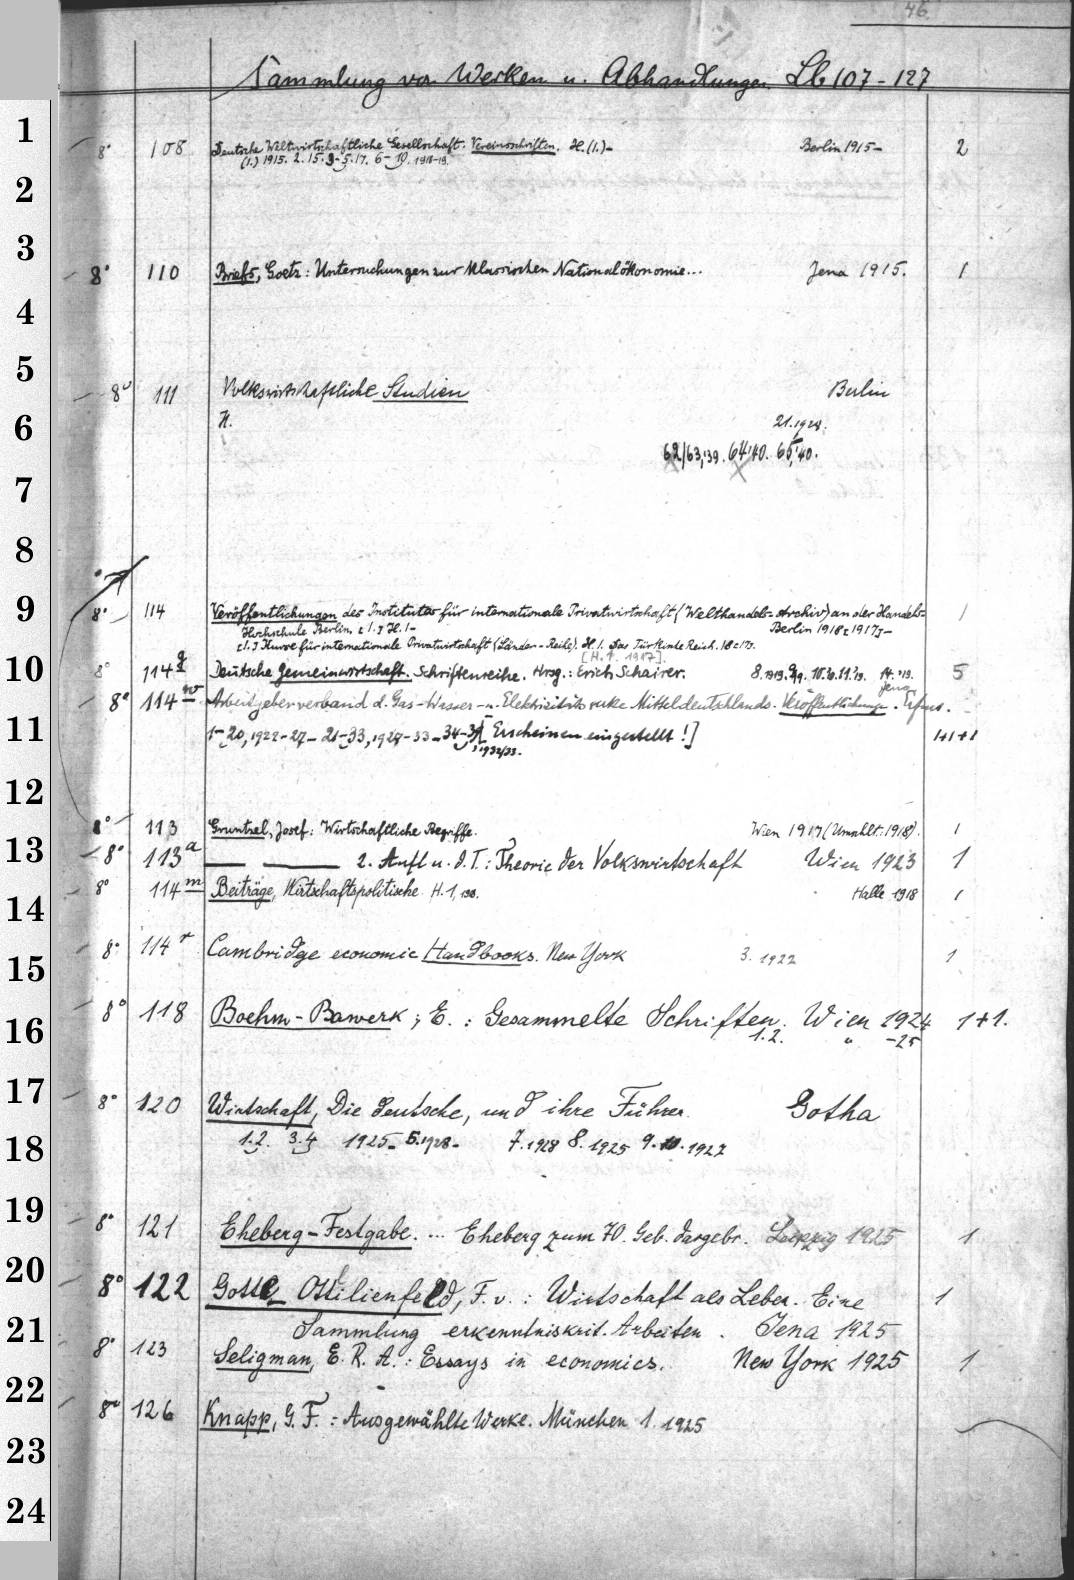 46.
Sammlung von Werken u. Abhandlungen. Lb 107-127
1
8° 108 Deutsche Weltwirtschaftliche Gesellschaft. Vereinsschriften. H. (1.)- Berlin 1915- 2
(1.) 1915. 2.15. 3-5.17. 6-10. 1918-19.
2
3
8° 110 Briefs, Goetz: Untersuchungen zur klassischen Nationalökonomie... Jena 1915. 1
4
5
8° 111 Volkswirtschaftliche Studien Berlin
6
H. 21.1928.
62/63,'39. 64,'40. 65,'40.
7
8
9
8° 114 Veröffentlichungen des Institutes für internationale Privatwirtschaft (Welthandels-Archiv) an der Handels- 1
Hochschule Berlin, [1.] H. 1- Berlin 1918 [1917]-
[1.] Kurse für internationale Privatwirtschaft (Länder-Reihe). H. 1. Das Türkische Reich. 18 [17].
[H. 1. 1917].
10
8° 114q Deutsche Gemeinwirtschaft. Schriftenreihe. Hrsg.: Erich Schairer. 8.1919. 9,19. 10.'19. 11.'19. 14.'19. 5
Jena
8° 114w Arbeitgeberverband d. Gas-Wasser- u. Elektrizitätswerke Mitteldeutschlands. Veröffentlichungen.
11
1-20, 1922-27- 21-33, 1927-33- 34-37 [Erscheinen eingestellt!] 1+1+1
1932/33.
12
8° 113 Gruntzel, Josef: Wirtschaftliche Begriffe. Wien 1917 (Umschlt: 1918). 1
13
8° 113a — — 2. Aufl u. d. T.: Theorie der Volkswirtschaft Wien 1923 1
8° 114m Beiträge, Wirtschaftspolitische H. 1, 1918. Halle 1918 1
14
8° 114r Cambridge economic Handbooks. New York 3. 1922 1
15
8° 118 Boehm-Bawerk, E.: Gesammelte Schriften. Wien 1924 1+1.
16
1.2. " -25
17
8° 120 Wirtschaft, Die deutsche, und ihre Führer. Gotha
18
1.2. 3.4 1925- 5.1928- 7.1928 8.1925 9.10.1927
19
8° 121 Eheberg-Festgabe. ... Eheberg zum 70. Geb. dargebr. Leipzig 1925 1
20
8° 122 Gottl-Ottilienfeld, F. v.: Wirtschaft als Leben. Eine 1
21
Sammlung erkenntniskrit. Arbeiten. Jena 1925
8° 123 Seligman, E. R. A.: Essays in economics. New York 1925 1
22
8° 126 Knapp, G. F.: Ausgewählte Werke. München 1. 1925
23
24